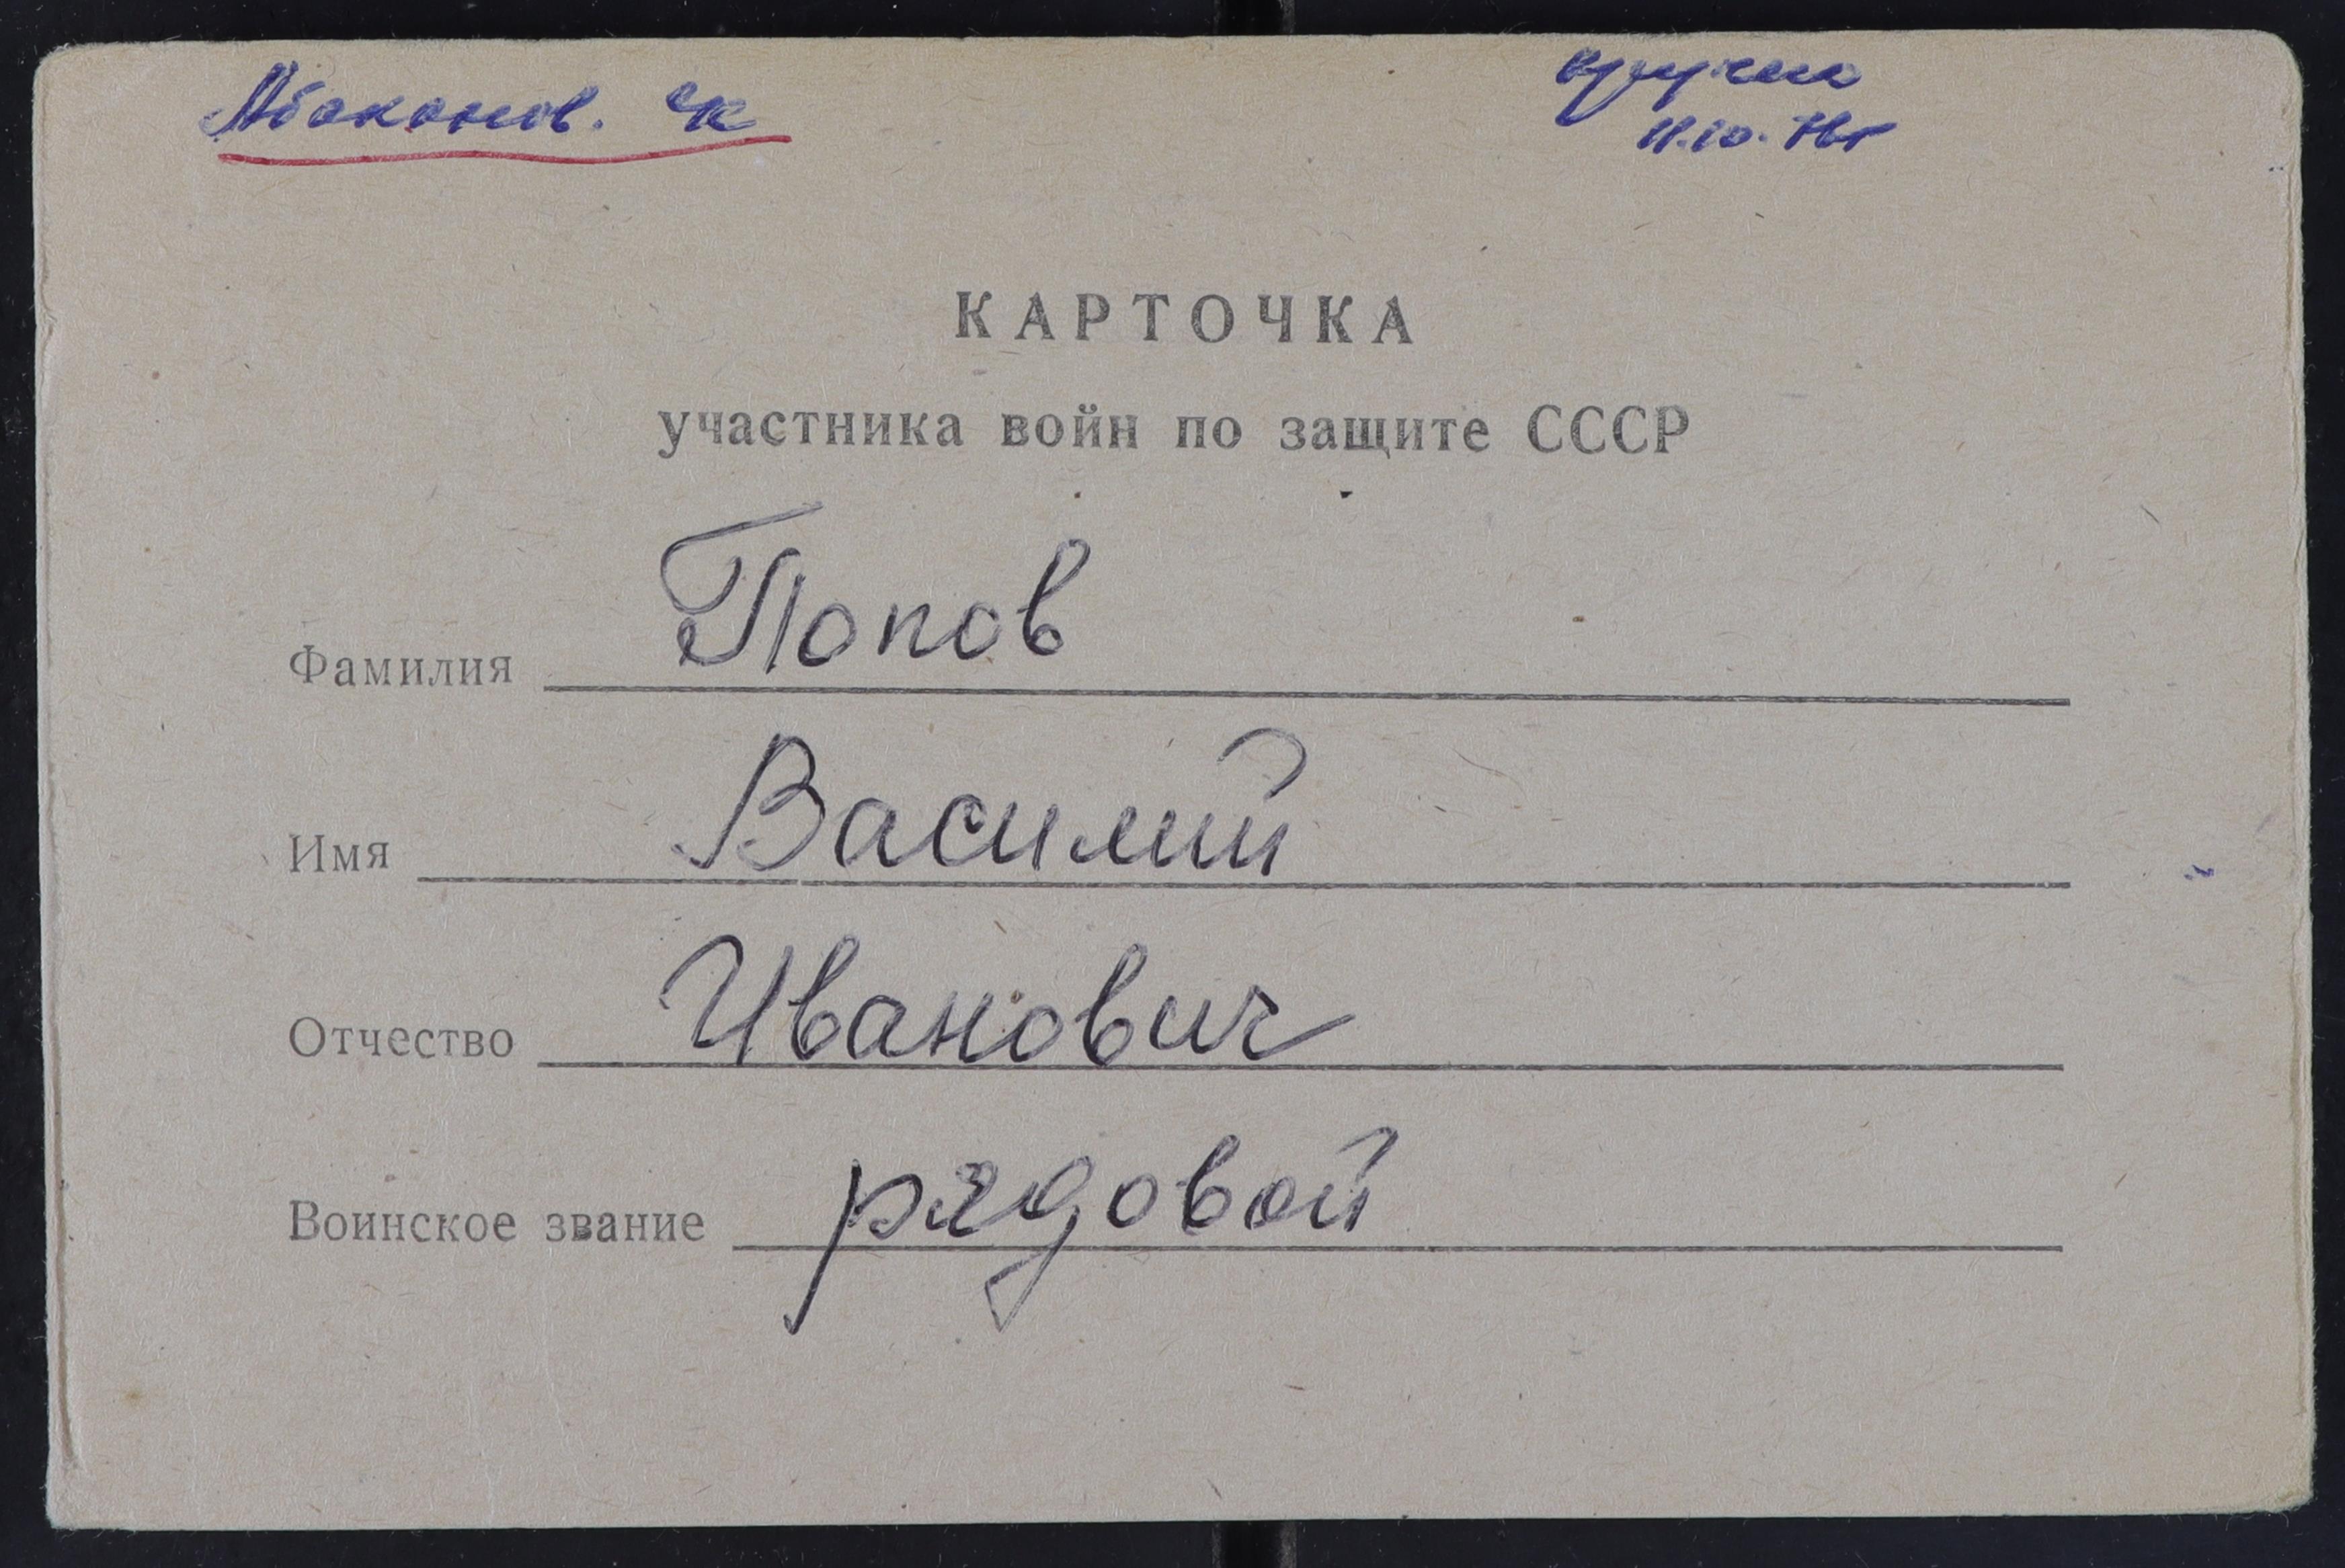 Абаканов. ГК
вручено
11.10.78г
КАРТОЧКА
участника войн по защите СССР
Фамилия Попов
Имя Василий
Отчество Иванович
Воинское звание рядовой